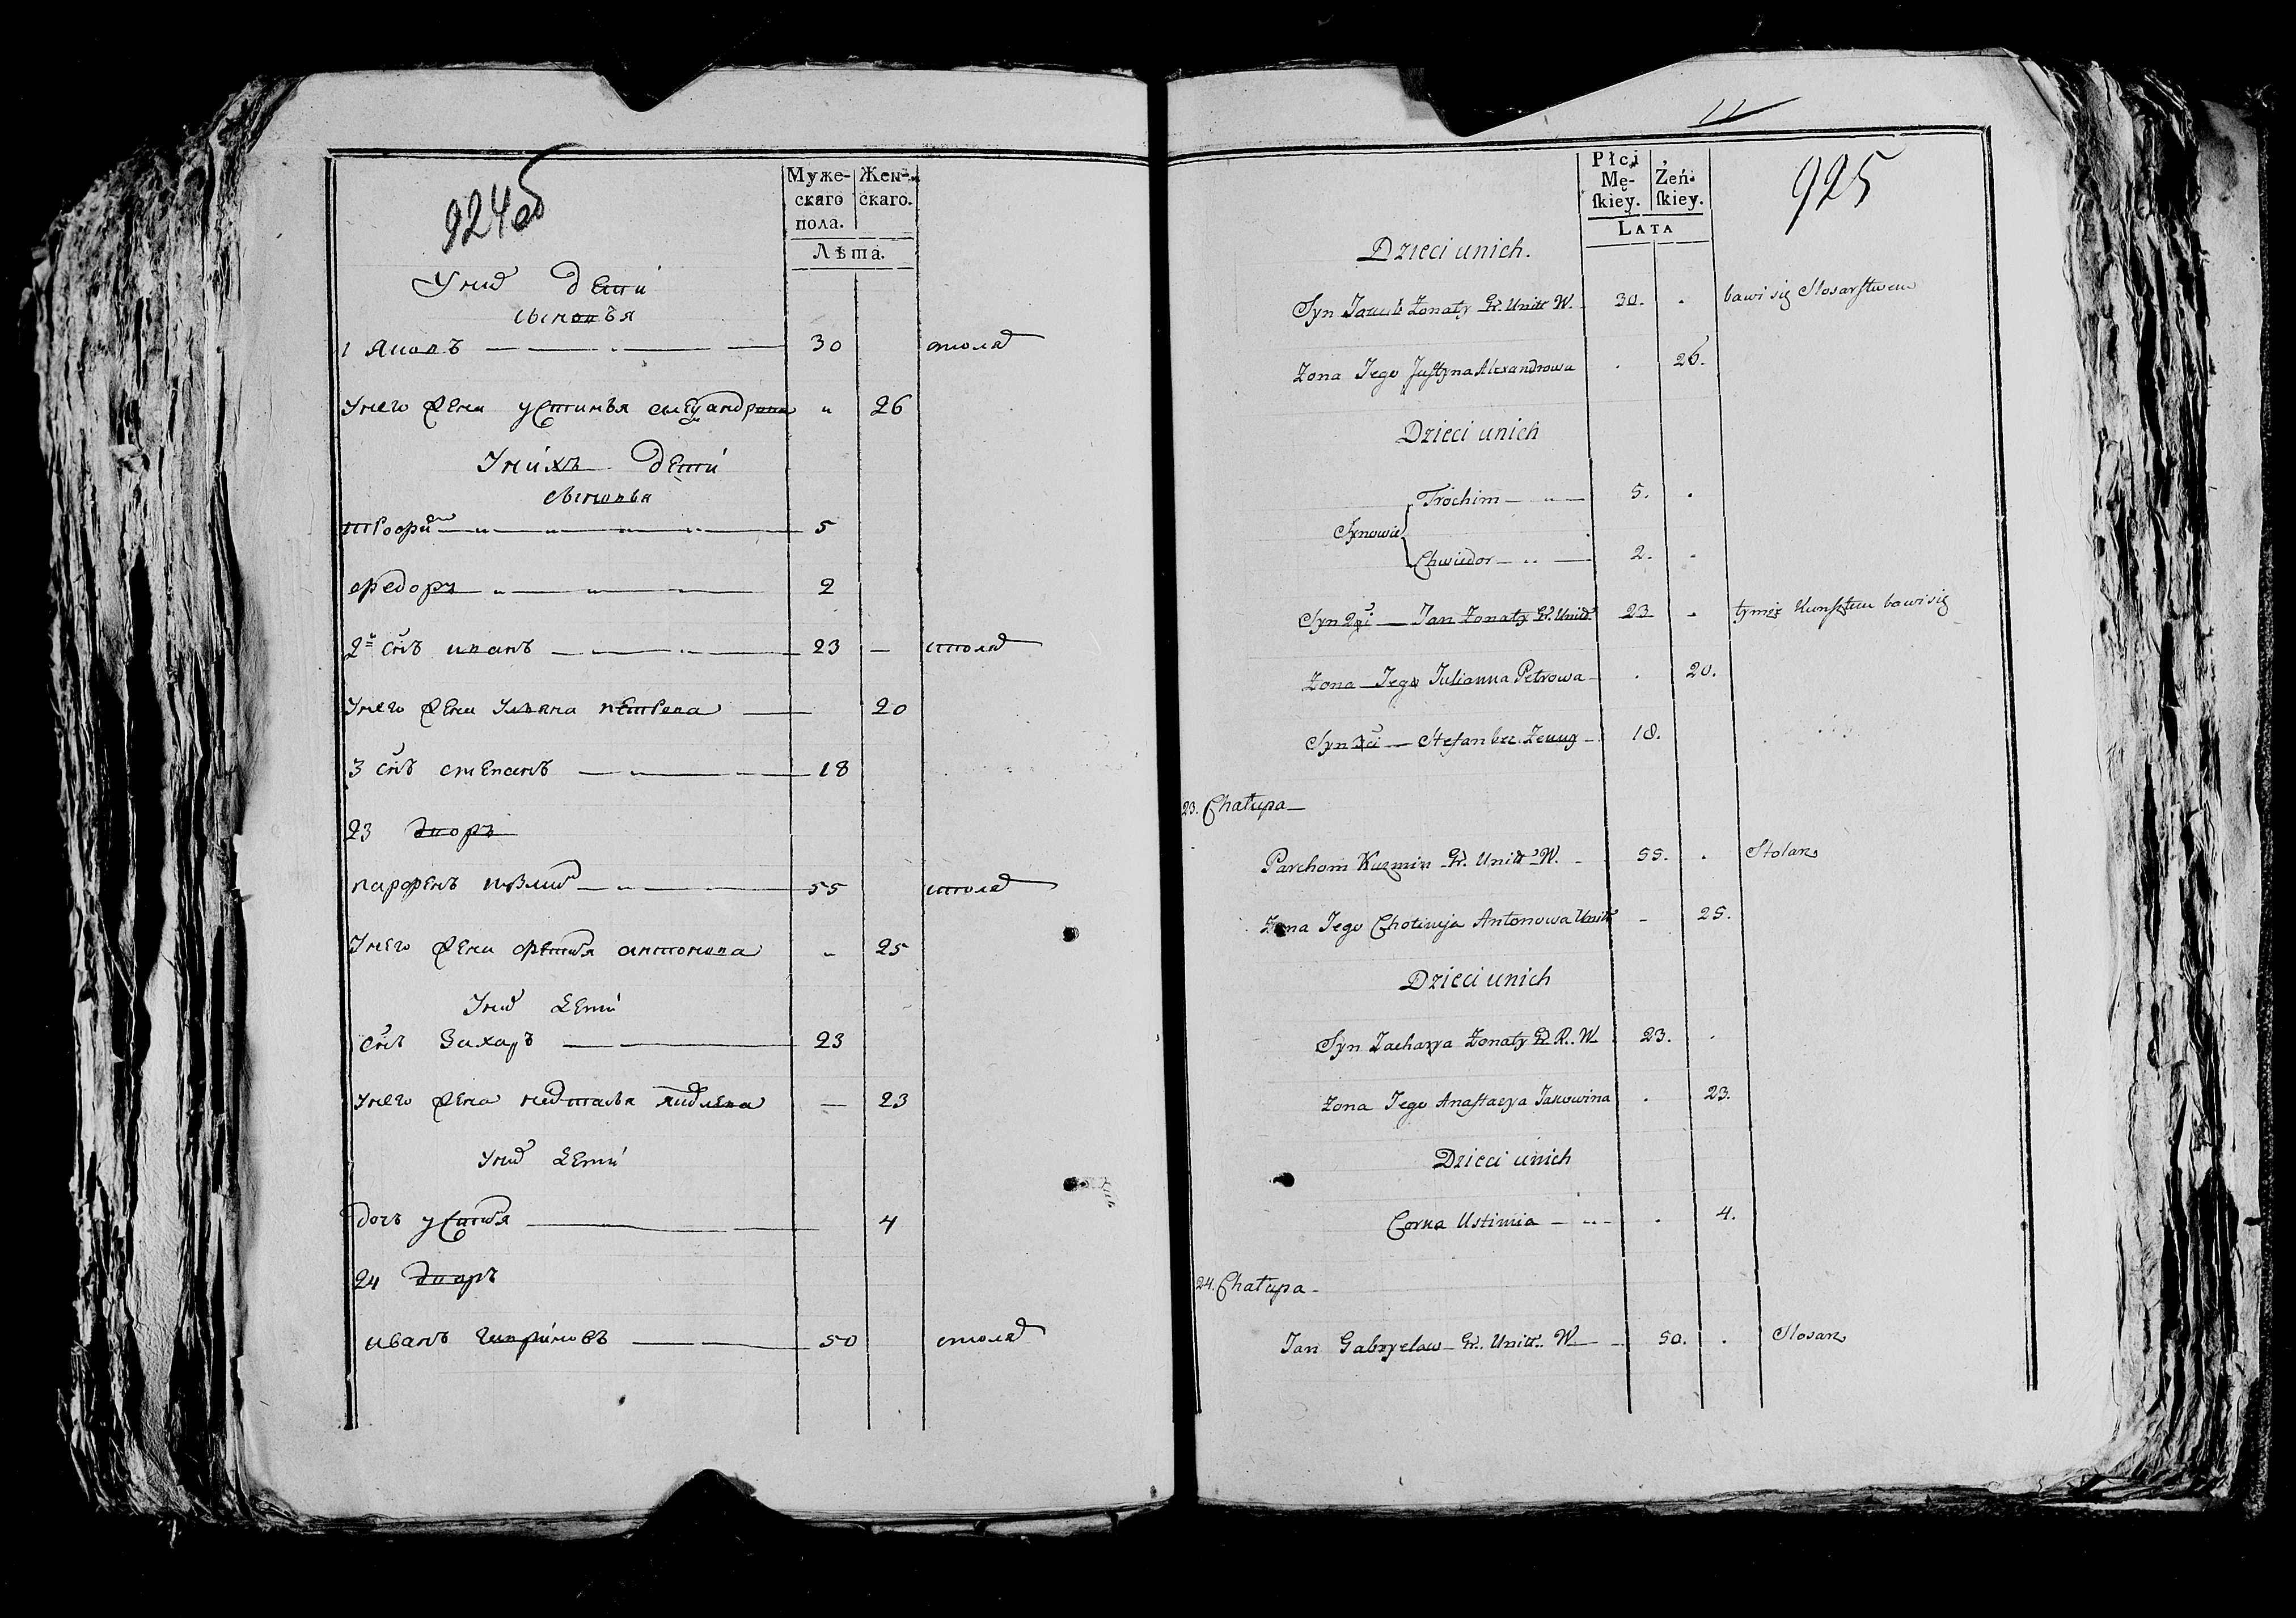 924об
Муже-
скаго
пола.
Жен-
скаго.
Лѣта.
У них дети
сыновья
1 Яковъ 30 столяр
У него жена устинья 26
У нихъ дети
сыновья
трофим 5
федоръ 2
2й снъ иванъ 23 — столяр
У него жена Ульяна петрова 20
3 снъ степанъ 18
23 дворъ
парфенъ 55 столяр
У него жена фетинья антонова 25
У них дети
снъ Захаръ 23
У него жена — 23
У них дети
дочь устинья 4
24 дворъ
иванъ 50 столяр
11
925
Płci
Mę-
ſkiey.
Żeń-
ſkiey.
LATA
Dzieci unich.
Syn Jakub Żonaty Gr. Unitt W. 30. . bawi się Slosarstwem
Żona Jego Justyna Alexandrowa . 26.
Dzieci unich
Trochim 5. .
Synowie
Chwiedor 2. .
Syn 2gi — Jan Żonaty Gr. Unitt 23 . tymże Kunsztem bawi się
Żona Jego Julianna Petrowa . 20.
Syn 3ci — Stefan bez Żenny 18.
23. Chałupa
Parchom Kuzmin Gr. Unitt W. 55. . Stolarz
Żona Jego Chotinja Antonowa Unitt - 25.
Dzieci unich
Syn Zacharya Żonaty G. R. W. 23. .
Żona Jego Anastazya Jakowina . 23.
Dzieci unich
Corka Ustinia . 4.
24. Chałupa
Jan Gabryelow Gr. Unitt. W. 50. . Slosarz